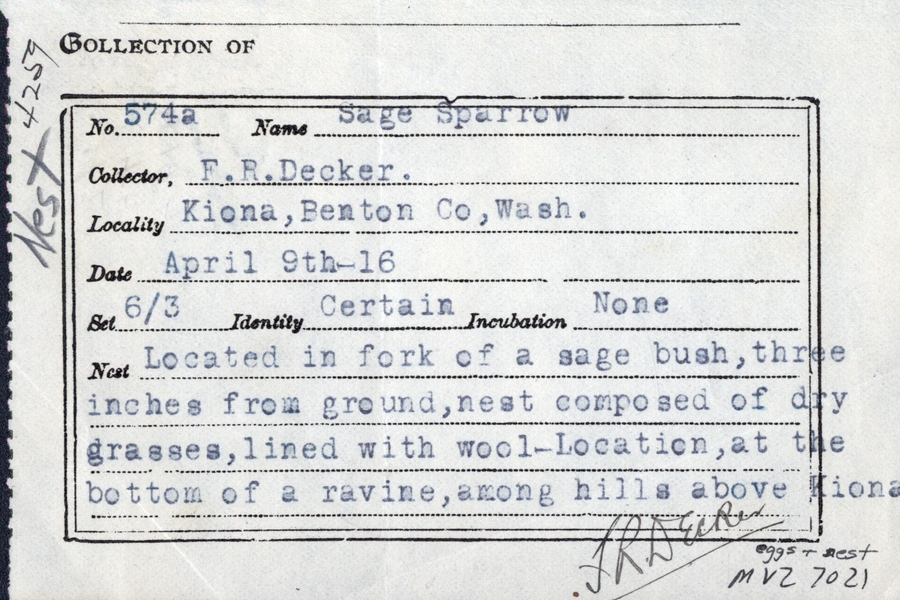 COLLECTION OF
Nest 4259
No. 574a Name Sage Sparrow
Collector, F.R.Decker.
Locality Kiona,Benton Co,Wash.
Date April 9th-16
Set 6/3 Identity Certain Incubation None
Nest Located in fork of a sage bush,three
inches from ground,nest composed of dry
grasses,lined with wool-Location,at the
bottom of a ravine,among hills above Kiona
F.R.Decker
eggs + nest
MVZ 7021